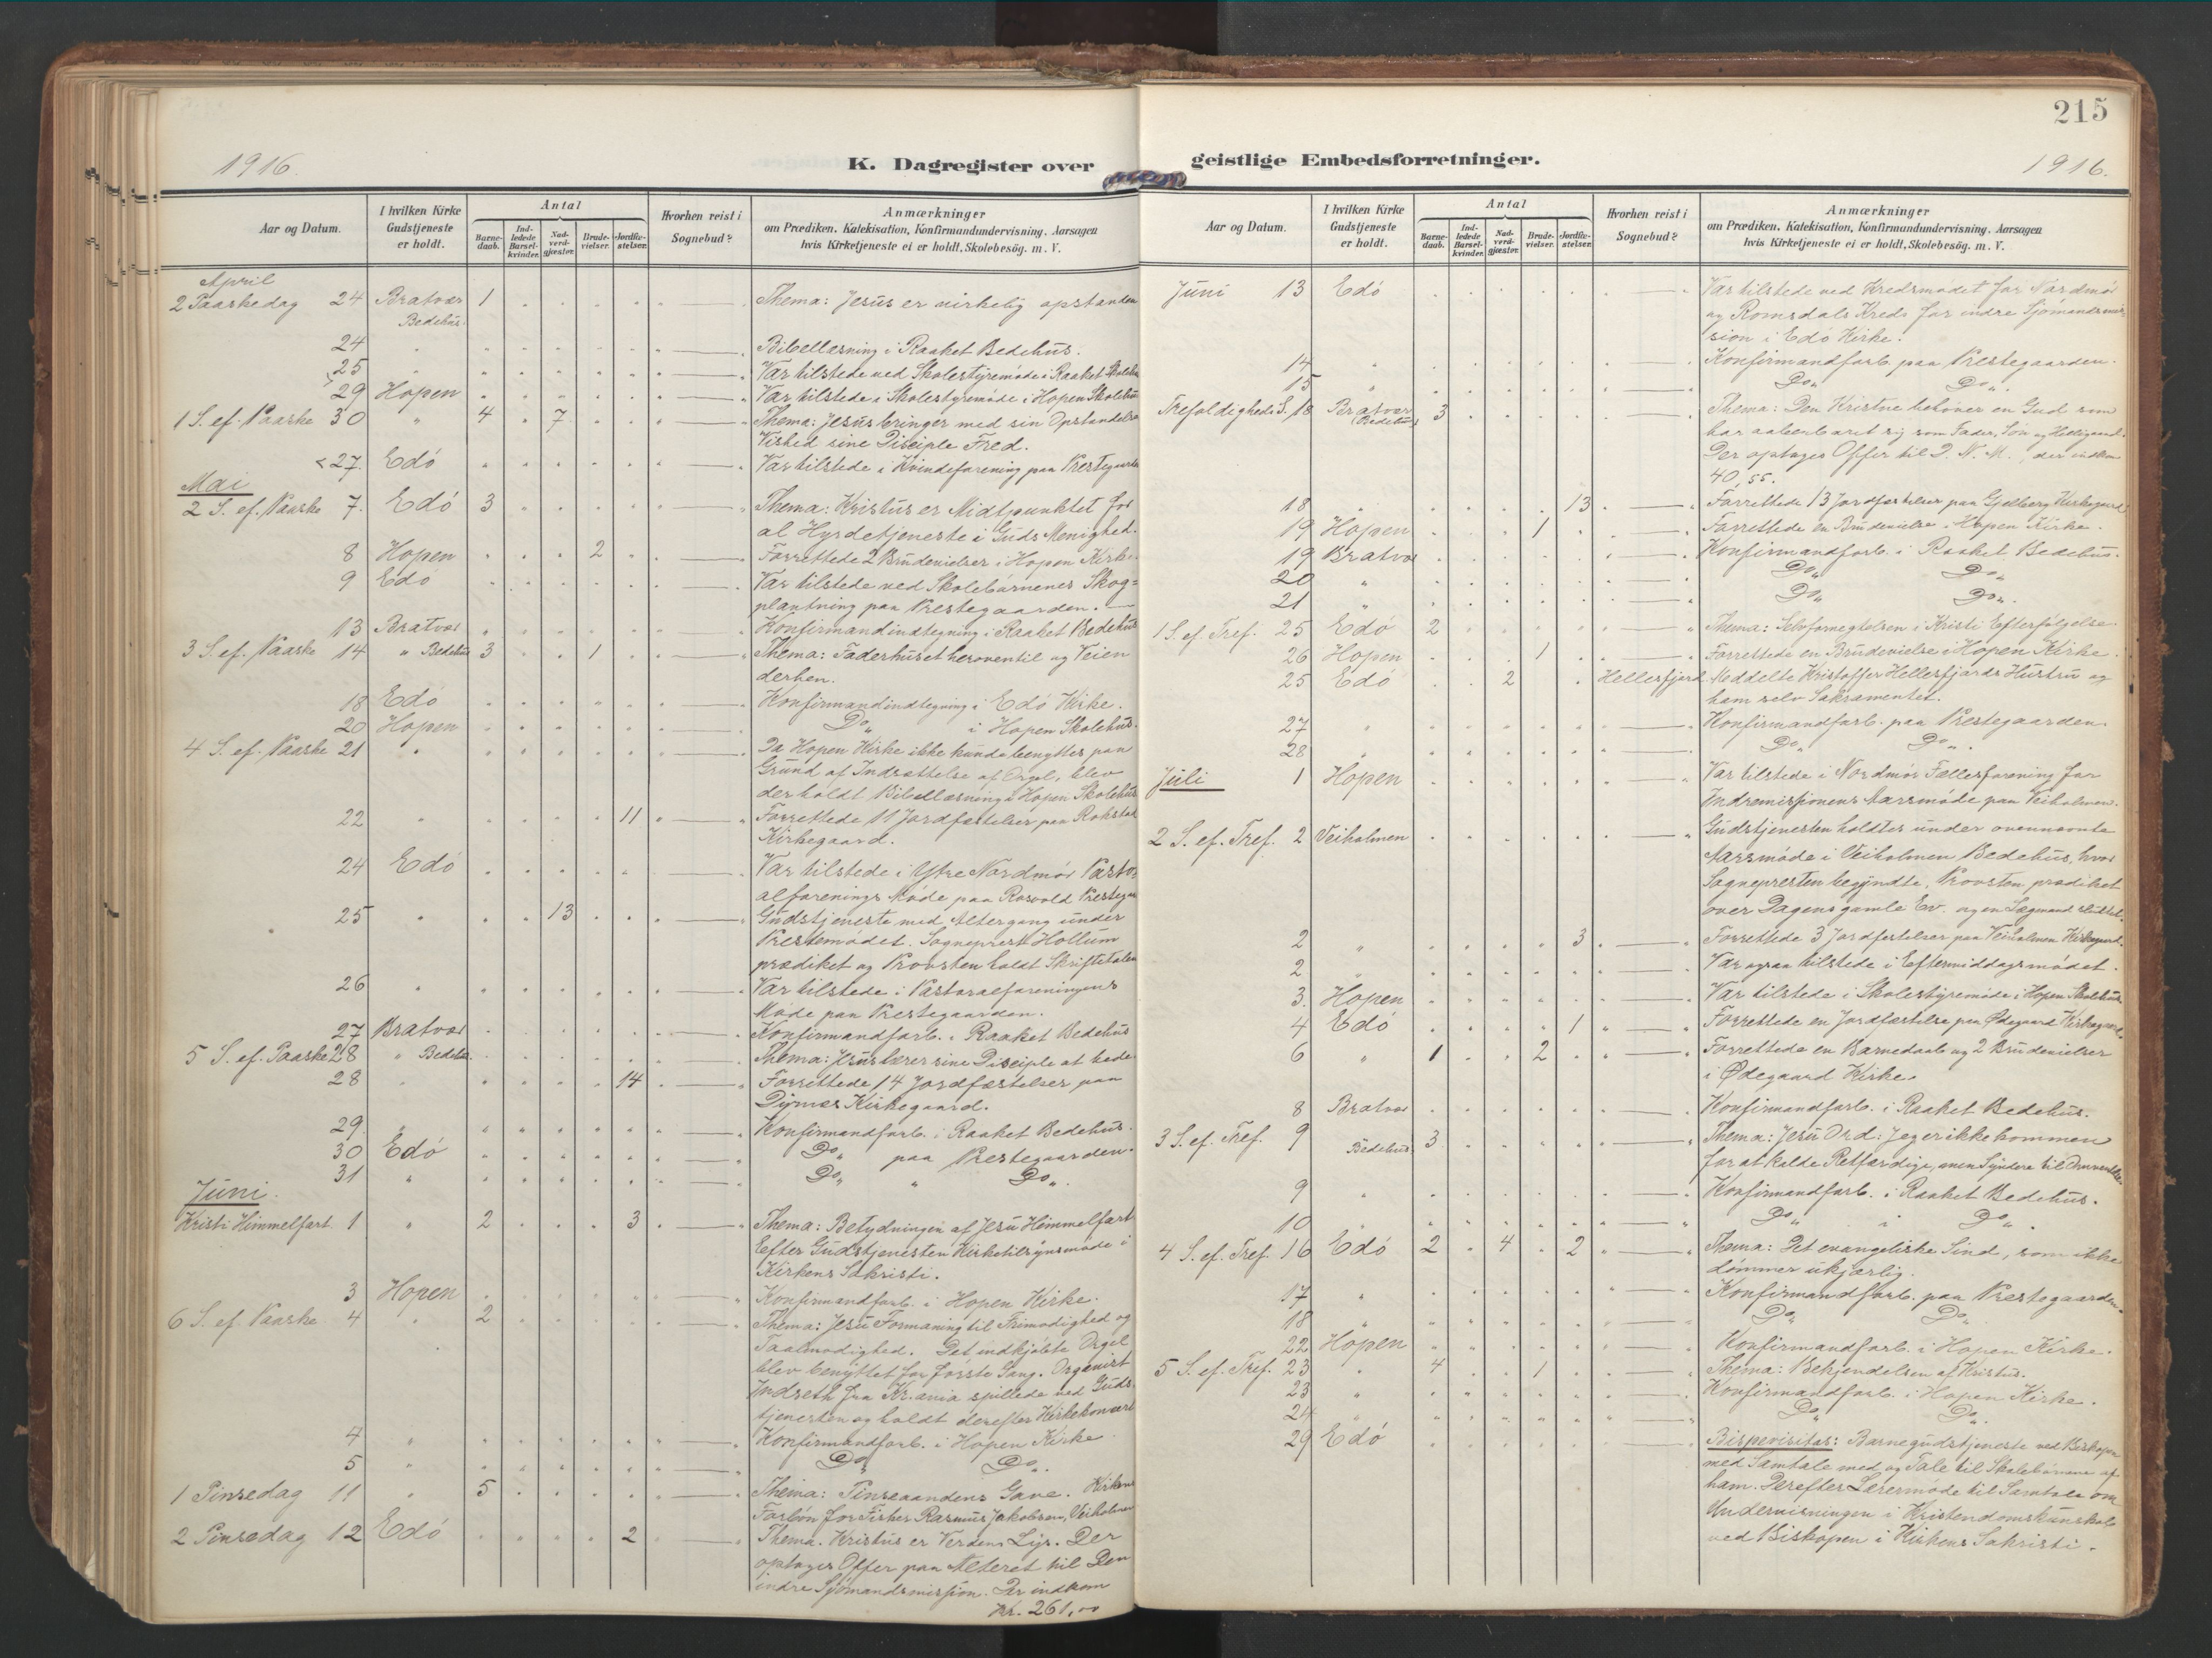 215
1916.
K. Dagregister over
geistlige Embedsforretninger.
1916.
Aar og Datum.
I hvilken Kirke Gudstjeneste er holdt.
Antal
Barnedaab.
Indledede Barselkvinder.
Nadverdgjæster.
Brudevielser.
Jordfæstelser.
Hvorhen reist i Sognebud?
Anmærkninger
om Prædiken. Katekisation, Konfirmandundervisning. Aarsagen
hvis Kirketjeneste ei er holdt, Skolebesög. m. V.
April
2 Paaskedag 24 Bratvær 1 Thema: Jesus er virkelig opstanden
Bedehus.
24 " Bibellæsning i Raaket Bedehus.
25 " Var tilstede ved Skolestyremøde i Raaket Skolehus
29 Hopen Var tilstede i Skolestyremøde i Hopen Skolehus
1 S. ef. Paaske 30 " 4 7 Thema: Jesus bringer med sin Opstandelses
Vished sine Disciple Fred.
27. Edö Var tilstede i Kvindeforening paa Prestegaarden
Mai
2 S. ef. Paaske 7. Edö 3 Thema: Kristus er Midtpunktet for
al Hyrdetjeneste i Guds Menighed.
8 Hopen 2 Forrettede 2 Brudevielser i Hopen Kirke.
9 Edö Var tilstede ved Skolebörnenes Skog=
plantning paa Prestegaarden.
13 Bratvær Konfirmandindtegning i Raaket Bedehus
3 S. ef. Paaske 14 " Bedehus 3 1 Thema: Faderhuset heroventil og Veien
derhen.
18 Edö Konfirmandindtegning i Edö Kirke.
20 Hopen Do " i Hopen Skolehus.
4 S. ef. Paaske 21 " Da Hopen Kirke ikke kunde benyttes paa
Grund af Indsættelse af Orgel, blev
der holdt Bibellæsning i Hopen Skolehus
22 " 11 Forrettede 11 Jordfæstelser paa Rokstad
Kirkegaard.
24 Edö Var tilstede i Ytre Nordmör Pasto=
ralforenings Möde paa Rosvold Prestegaard
25 " 13 Gudstjeneste med Altergang under
Prestemödet. Sogneprest Hollum
prædiket og Provsten holdt Skriftetalen
26 " Var tilstede i Pastoralforeningens
Möde paa Prestegaarden.
27 Bratvær Konfirmandforb. i Raaket Bedehus
5 S. ef. Paaske 28 " Bedehus Thema: Jesus lærer sine Disciple at bede
28 " 14 Forrettede 14 Jordfæstelser paa
Dyrnes Kirkegaard.
29. " Konfirmandforb. i Raaket Bedehus.
30 Edö Do " paa Prestegaarden.
31 " Do " " Do ".
Juni.
Kristi Himmelfart. 1 " 2 3 Thema: Betydningen af Jesu Himmelfart
Efter Gudstjenesten Kirketilsynsmøde i
Kirkens Sakristi.
3 Hopen Konfirmandforb. i Hopen Kirke.
6 S. ef. Paaske 4 " 2 Thema: Jesu Formaning til Frimodighed og
Taalmodighed. Det indkjöbte Orgel
blev benyttet for förste Gang. Organist
Indseth fra Kr.ania spillede ved Guds
tjenesten og holdt derefter Kirkekoncert
4 " Konfirmandforb. i Hopen Kirke.
5 " Do " Do ".
1 Pinsedag 11 " 5 Thema: Pinseaandens Gave. Kirkens
Forbön for Fisker Rasmus Jakobsen, Veiholmen
2 Pinsedag 12 Edö 2 Thema. Kristus er Verdens Lys. Der
optoges Offer paa Alteret til Den
indre Sjömandsmission. Der indkom
Kr. 261,00
Aar og Datum.
I hvilken Kirke Gudstjeneste er holdt.
Antal
Barnedaab.
Indledede Barselkvinder.
Nadverdgjæster.
Brudevielser.
Jordfæstelser.
Hvorhen reist i Sognebud?
Anmærkninger
om Prædiken, Katekisation, Konfirmandundervisning. Aarsagen
hvis Kirketjeneste ei er holdt, Skolebesög. m. V.
Juni 13 Edö Var tilstede ved Kredsmödet for Nordmör
og Romsdals Kreds for indre Sjömandsmis=
sion i Edö Kirke.
14 " Konfirmandforb. paa Prestegaarden.
15 " Do " Do ".
Trefoldigheds S. 18 Bratvær 3 Thema: Den Kristne behöver en Gud som
(Bedehus) har aabenbaret sig som Fader, Sön og Helligaand.
Der optoges Offer til D. N. M., der indkom
40,55.
18 " 13 Forrettede 13 Jordfæstelser paa Gjelberg Kirkegaard
19 Hopen 1 Forrettede en Brudevielse i Hopen Kirke.
19 Bratvær Konfirmandforb. i Raaket Bedehus.
20 " Do " Do "
21 " Do " Do ".
1 S. ef. Tref. 25 Edö 2 Thema: Selvfornegtelsen i Kristi Efterfölgelse
26 Hopen 1 Forrettede en Brudevielse i Hopen Kirke.
25 Edö 2 Hellesfjord. Meddelte Kristoffer Hellesfjords Hustru og
ham selv Sakramentet.
27 " Konfirmandforb. paa Prestegaarden.
28 " Do " Do ".
Juli 1 Hopen Var tilstede i Nordmör Fællesforening for
Indremissionens Aarsmöde paa Veiholmen.
2 S. ef. Tref. 2 Veiholmen Gudstjenesten holdtes under ovennævnte
Aarsmöde i Veiholmen Bedehus, hvor
Sognepresten begyndte, Provsten prædiket
over Dagens gamle Ev. og en Lægmand sluttet.
2 " 3 Forrettede 3 Jordfæstelser paa Veiholmen Kirkegaard.
2 " Var ogsaa tilstede i Eftermiddagsmödet.
3. Hopen Var tilstede i Skolestyremöde i Hopen Skolehus
4 Edö 1 Forrettede en Jordfæstelse paa Ødegaard Kirkegaard.
6 " 1 2 Forrettede en Barnedaab og 2 Brudevielser
i Ødegaard Kirke.
8 Bratvær Konfirmandforb. i Raaket Bedehus.
3 S. ef. Tref. 9 Bedehus. 3 Thema: Jesu Ord: Jeg er ikke kommen
for at kalde Retfærdige, men Syndere til Omvendelse.
9 " Konfirmandforb. i Raaket Bedehus.
10 " Do " i Do ".
4 S. ef. Tref. 16 Edö 2 4 2 Thema: Det evangeliske Sind, som ikke
dömmer ukjærlig.
17 " Konfirmandforb. paa Prestegaarden.
18 " Do " Do "
22 Hopen Konfirmandforb. i Hopen Kirke.
5 S. ef. Tref. 23 " 4 1 Thema: Bekjendelsen af Kristus.
23 " Konfirmandforb. i Hopen Kirke.
24 " Do " Do ".
29 Edö Bispevisitas: Barnegudstjeneste ved Biskopen
med Samtale med og Tale til Skolebörnene af
ham. Derefter Lærermöde til Samtale om
Undervisningen i Kristendomskunskab
ved Biskopen i Kirkens Sakristi.